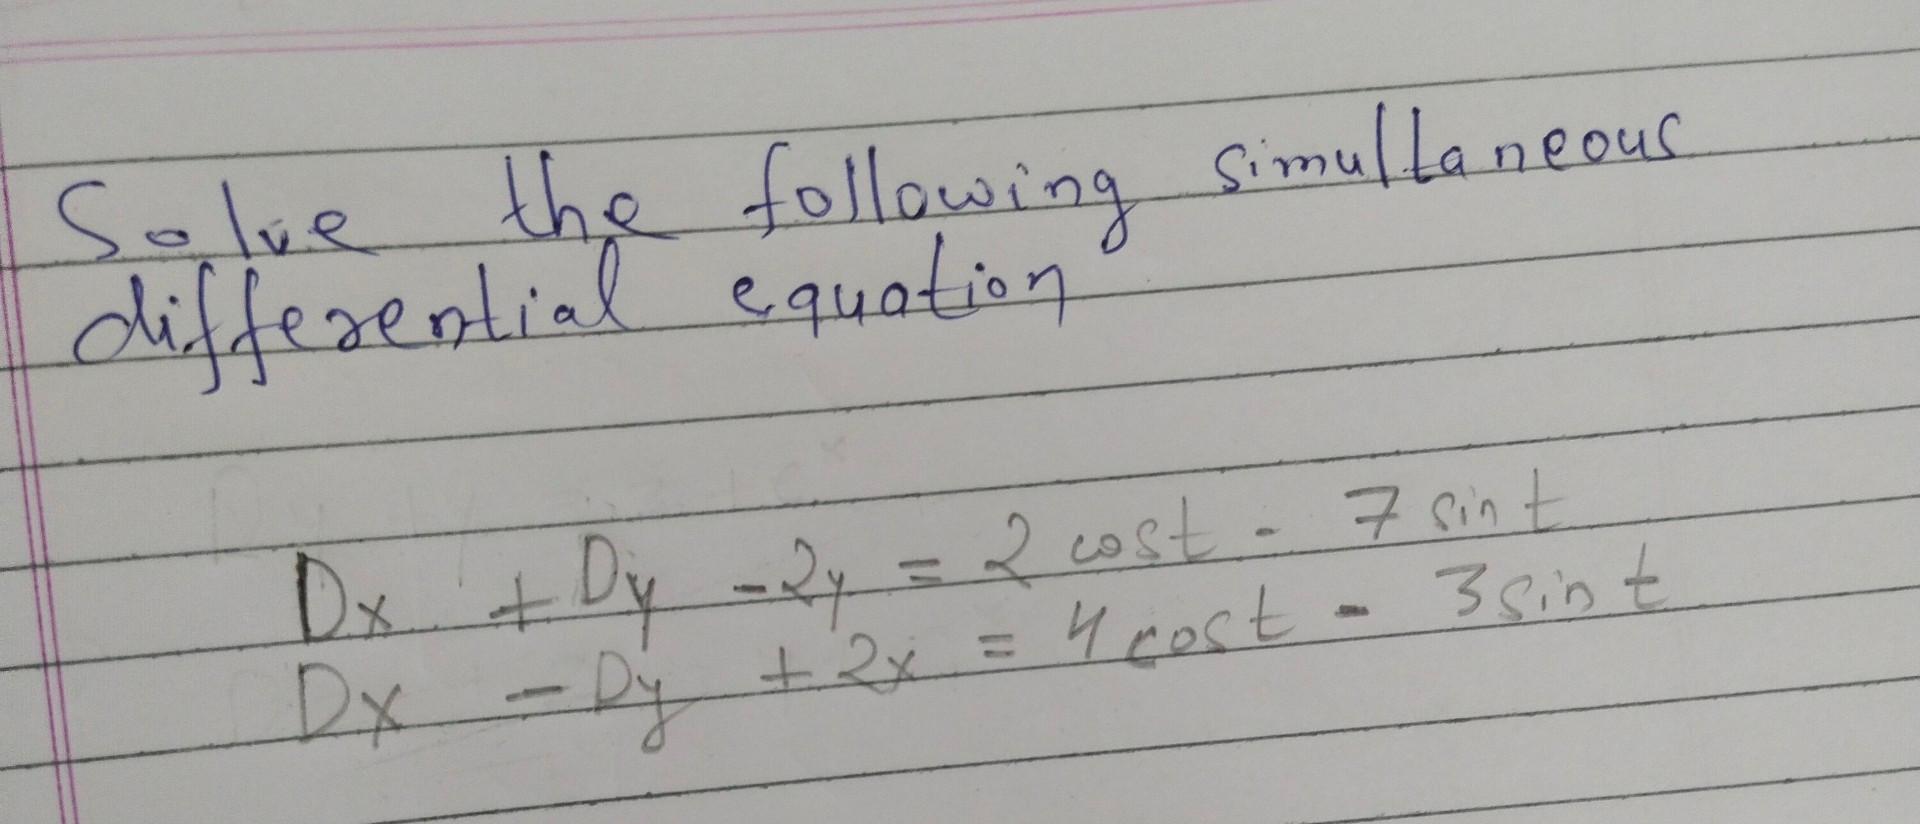 Solve the following simultaneous
differential equation
Dx + Dy - 2y = 2 cost - 7 sin t
Dx - Dy + 2x = 4 cost - 3 sin t